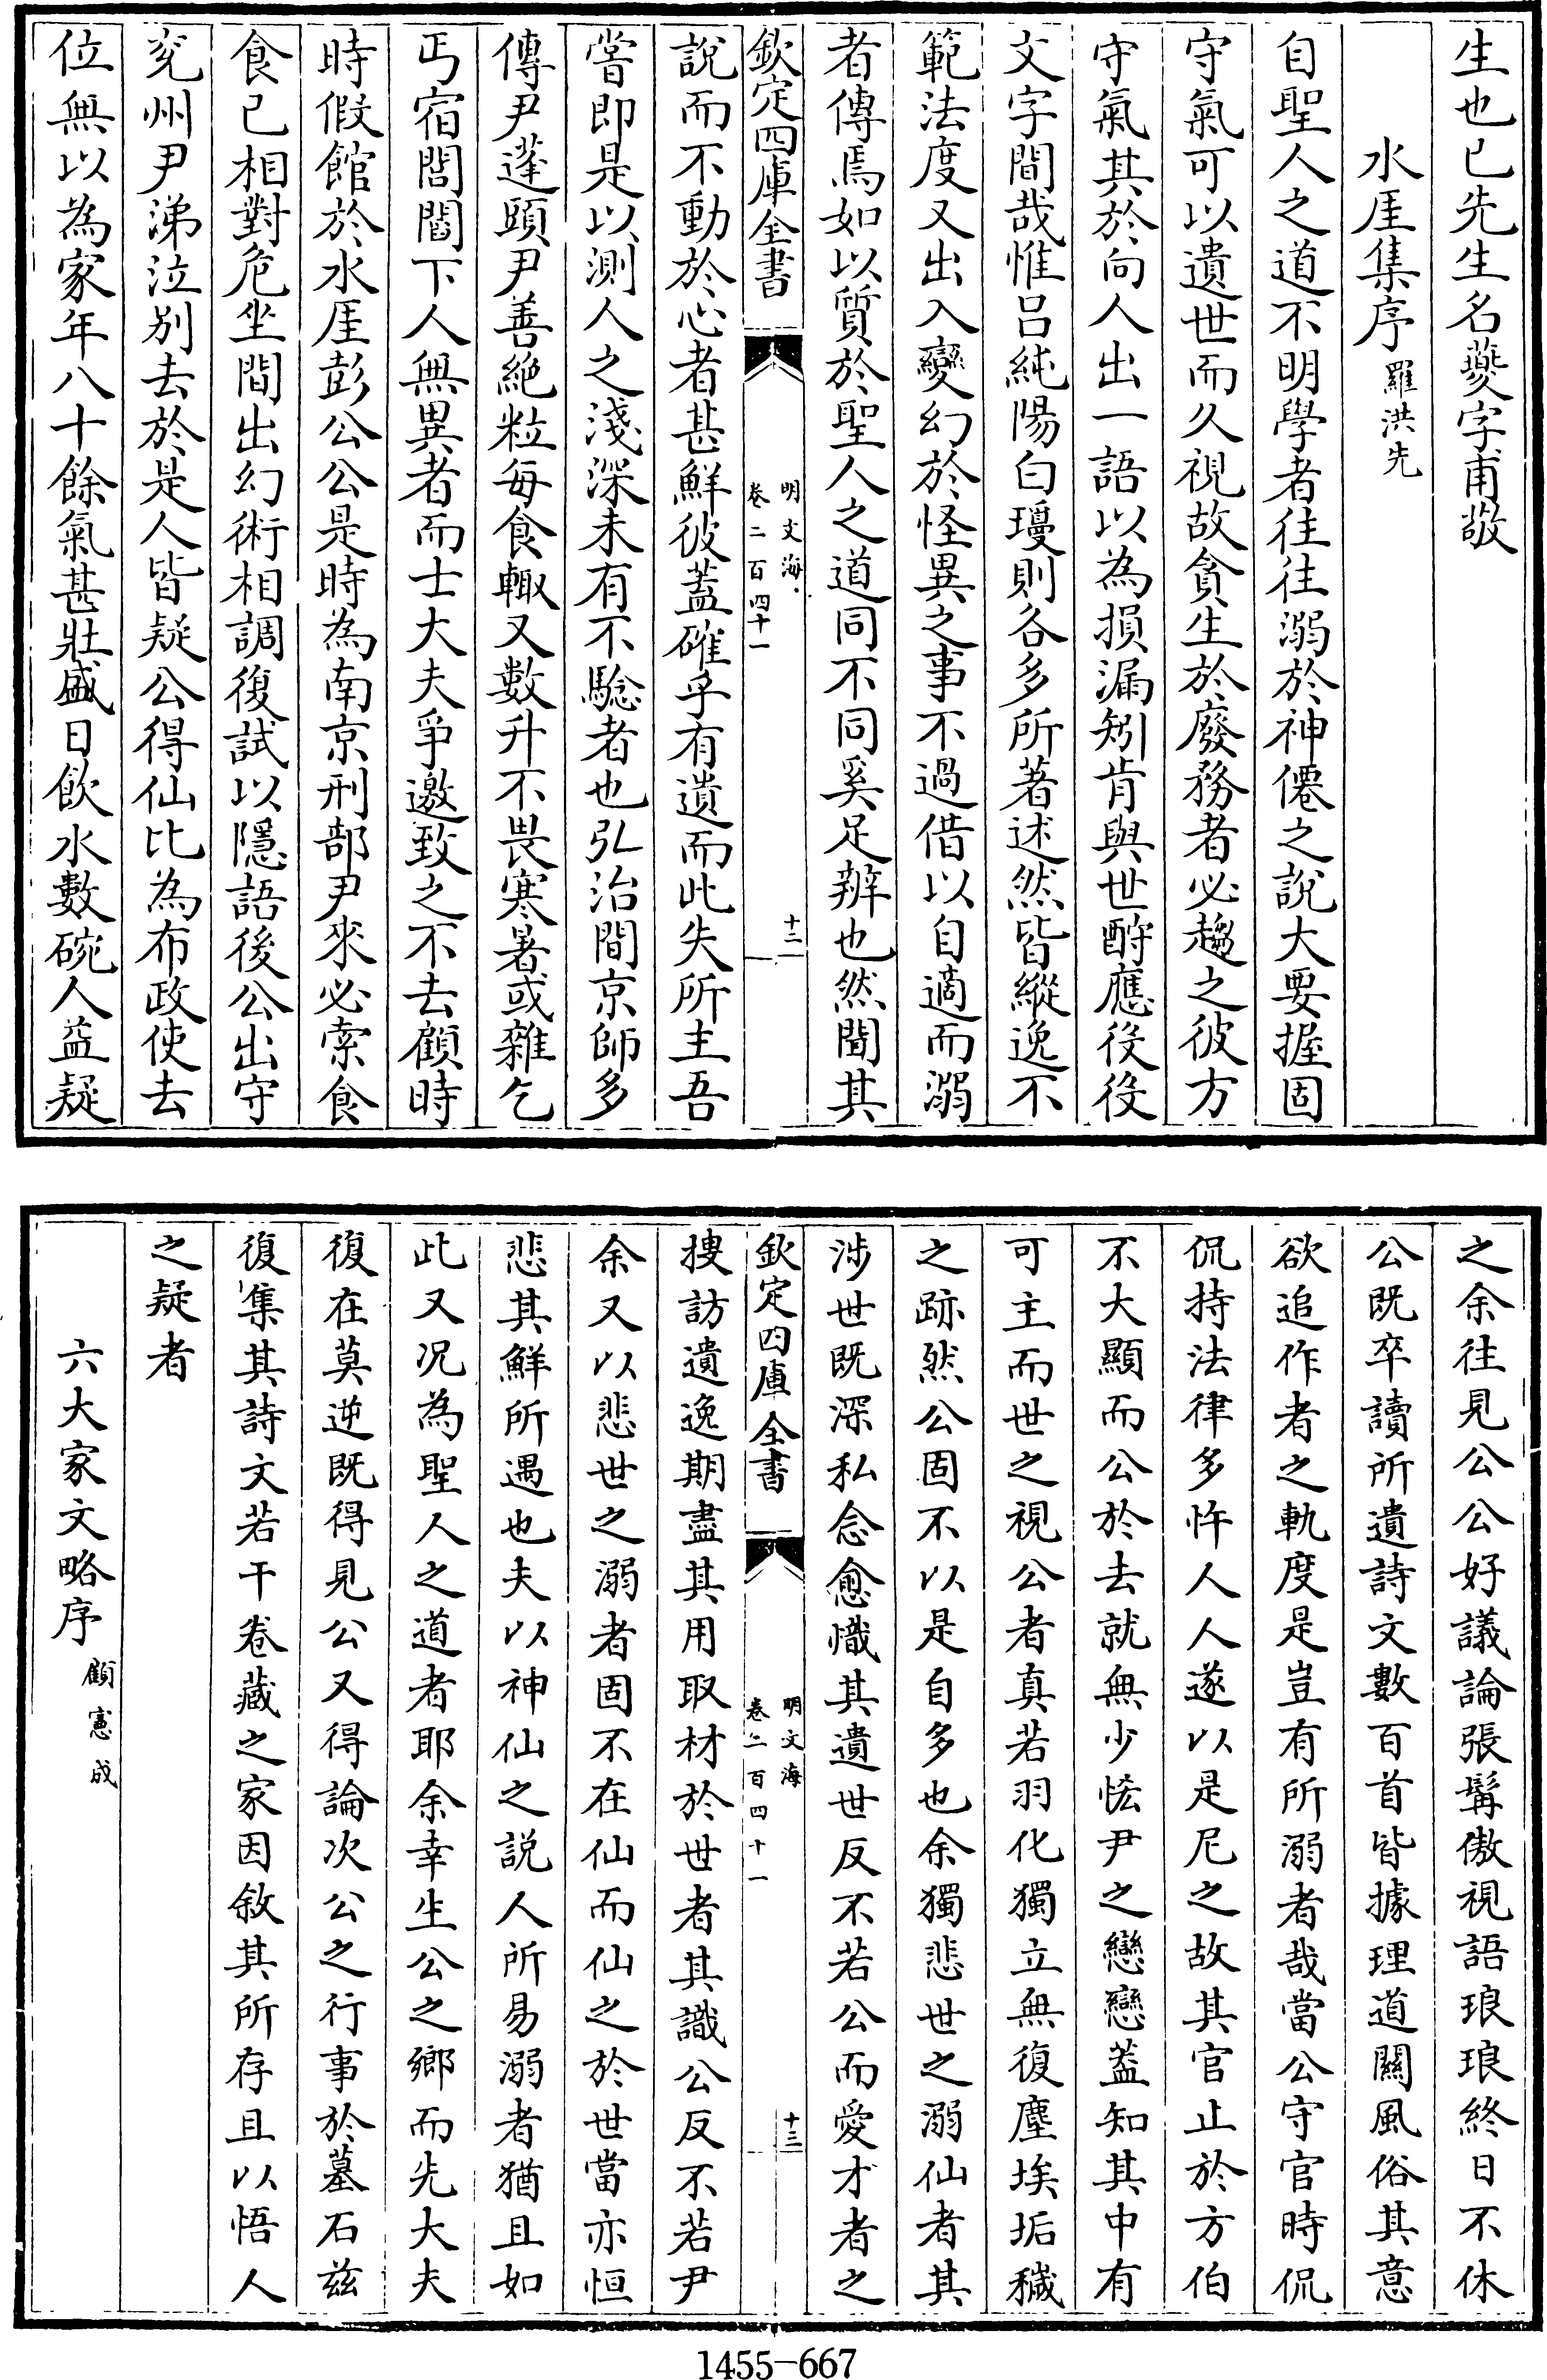 生也已先生名爕字甫敬
水厓集序 羅洪先
自聖人之道不明學者往往溺於神僊之說大要握固
守氣可以遺世而久視故貪生於廢務者必趨之彼方
守氣其於向人出一語以為損漏矧肯與世酧應役役
文字間哉惟呂純陽白瓊則各多所著述然皆縱逸不
範法度又出入變幻於怪異之事不過借以自適而溺
者傳焉如以質於聖人之道同不同奚足辨也然聞其
欽定四庫全書
明文海
卷二百四十一
十二
說而不動於心者甚鮮彼蓋確乎有遺而此失所主吾
嘗即是以測人之淺深未有不驗者也弘治間京師多
傳尹蓬頭尹善絶粒每食輙又數升不畏寒暑或雜乞
丐宿閭閻下人無異者而士大夫爭邀致之不去顧時
時假館於水厓彭公公是時為南京刑部尹來必索食
食已相對危坐間出幻術相調復試以隱語後公出守
兖州尹涕泣别去於是人皆疑公得仙比為布政使去
位無以為家年八十餘氣甚壯盛日飲水數碗人益疑
之余往見公公好議論張髯傲視語琅琅終日不休
公既卒讀所遺詩文數百首皆據理道關風俗其意
欲追作者之軌度是豈有所溺者哉當公守官時侃
侃持法律多忤人人遂以是尼之故其官止於方伯
不大顯而公於去就無少恡尹之戀戀蓋知其中有
可主而世之視公者真若羽化獨立無復塵埃垢穢
之跡然公固不以是自多也余獨悲世之溺仙者其
涉世既深私念愈熾其遺世反不若公而愛才者之
欽定四庫全書
明文海
卷二百四十一
十三
搜訪遺逸期盡其用取材於世者其識公反不若尹
余又以悲世之溺者固不在仙而仙之於世當亦恒
悲其鮮所遇也夫以神仙之說人所易溺者猶且如
此又况為聖人之道者耶余幸生公之鄉而先大夫
復在莫逆既得見公又得論次公之行事於墓石兹
復集其詩文若干卷藏之家因敘其所存且以悟人
之疑者
六大家文略序 顧憲成
1455-667